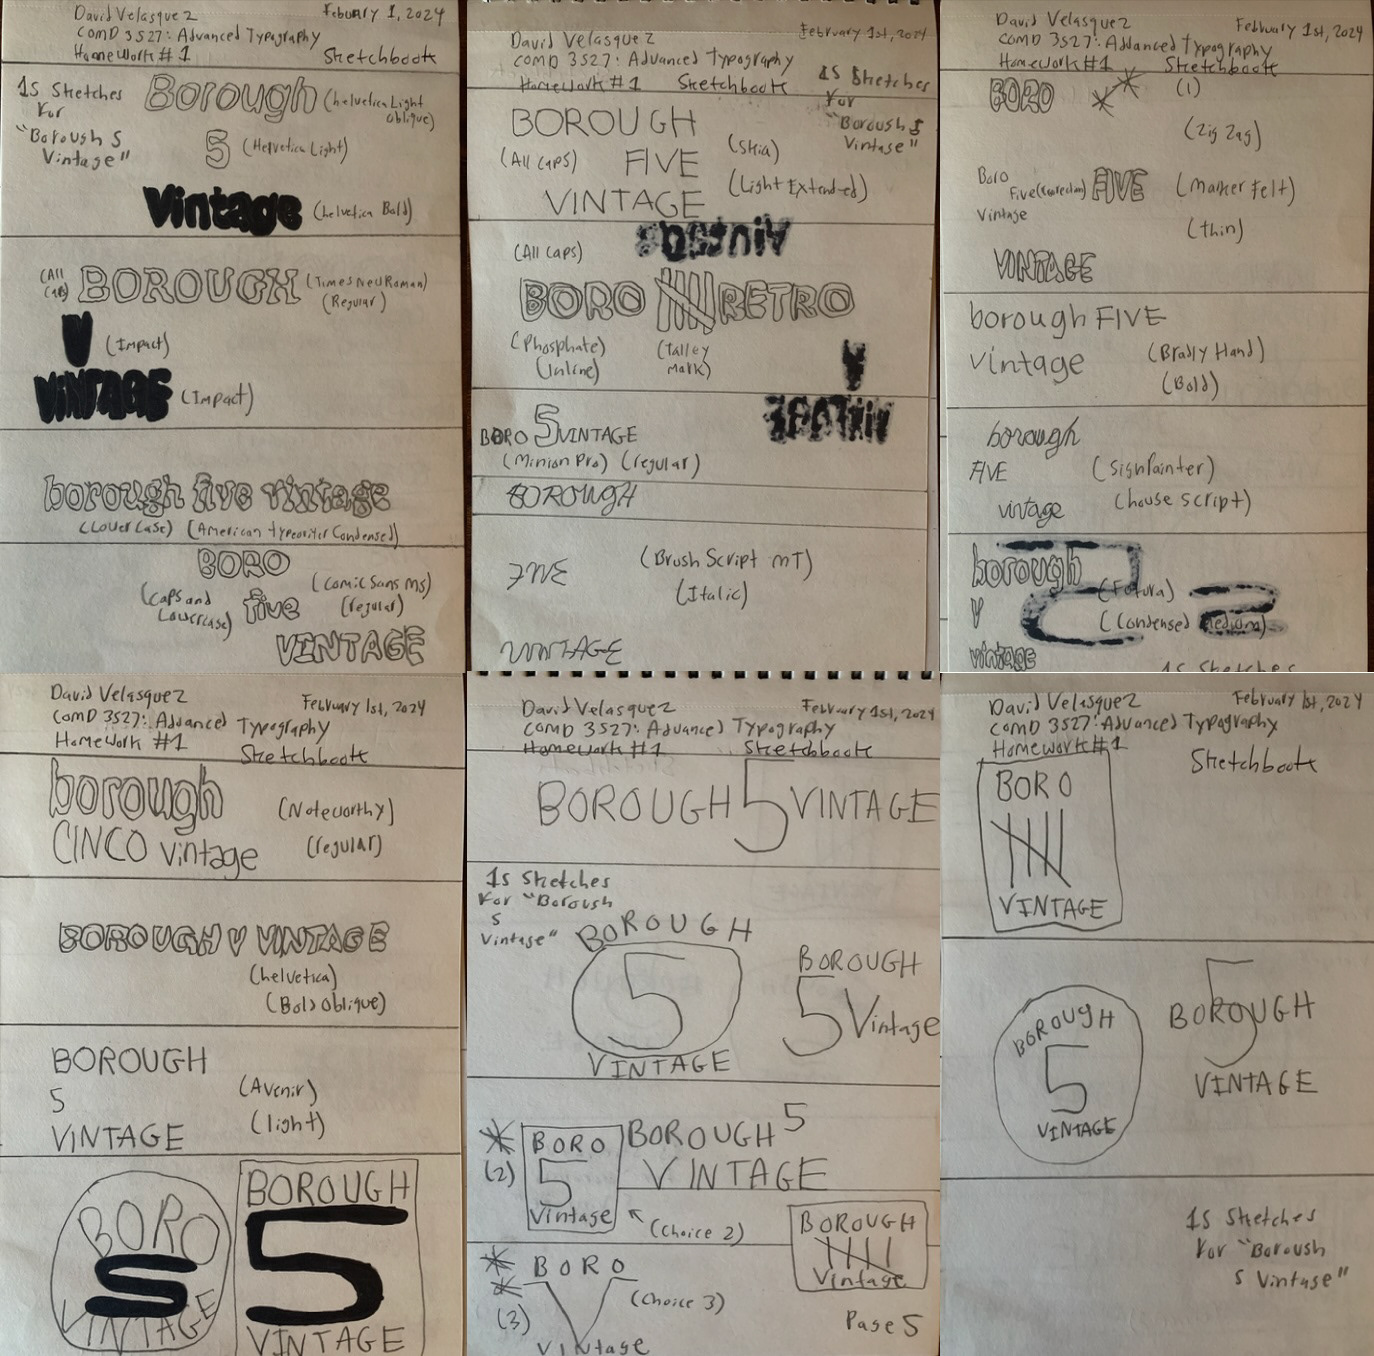 David Velasquez
February 1, 2024
COMD 3527: Advanced Typography
Homework #1
Sketchbook
15 Sketches
For
"Borough 5
Vintage"
Borough (Helvetica Light
Oblique)
5 (Helvetica Light)
Vintage (Helvetica Bold)
(All
Caps) BOROUGH (Times New Roman)
(Regular)
V (Impact)
VINTAGE (Impact)
borough five vintage
(Lowercase) (American Typewriter Condensed)
BORO
(Caps and
Lowercase)
five
(Comic Sans MS)
(regular)
VINTAGE
David Velasquez
February 1st, 2024
COMD 3527: Advanced Typography
Homework #1 Sketchbook
15 Sketches
For
"Borough 5
Vintage"
BOROUGH
(All Caps) FIVE (Skia)
VINTAGE (Light Extended)
(All Caps)
BORO RETRO
(Phosphate)
(Inline)
(Talley
Mark)
BORO 5 VINTAGE
(Minion Pro) (regular)
BOROUGH
FIVE
(Brush Script MT)
(Italic)
VINTAGE
David Velasquez
February 1st, 2024
COMD 3527: Advanced Typography
Homework #1 Sketchbook
BORO
(1)
(Zig Zag)
Boro
Five (Correction)
Vintage
FIVE (Marker Felt)
(thin)
VINTAGE
borough FIVE
vintage (Bradly Hand)
(Bold)
borough
FIVE (SignPainter)
vintage (house script)
borough
(Futura)
V
(Condensed Medium)
vintage
15 Sketches
David Velasquez
February 1st, 2024
COMD 3527: Advanced Typography
Homework #1
Sketchbook
borough (Noteworthy)
CINCO vintage (regular)
BOROUGH V VINTAGE
(helvetica)
(Bold Oblique)
BOROUGH
5 (Avenir)
VINTAGE (light)
BORO
5
VINTAGE
BOROUGH
5
VINTAGE
David Velasquez
February 1st, 2024
COMD 3527: Advanced Typography
Homework #1 Sketchbook
BOROUGH 5 VINTAGE
15 Sketches
For "Borough
5
Vintage"
BOROUGH
5
VINTAGE
BOROUGH
5 Vintage
(2)
BORO
5
Vintage
(Choice 2)
BOROUGH 5
VINTAGE
BOROUGH
Vintage
(3)
BORO
V
Vintage
(Choice 3)
Page 5
David Velasquez
February 1st, 2024
COMD 3527: Advanced Typography
Homework #1
Sketchbook
BORO
VINTAGE
BOROUGH
5
VINTAGE
5
BOROUGH
VINTAGE
15 Sketches
For "Borough
5 Vintage"